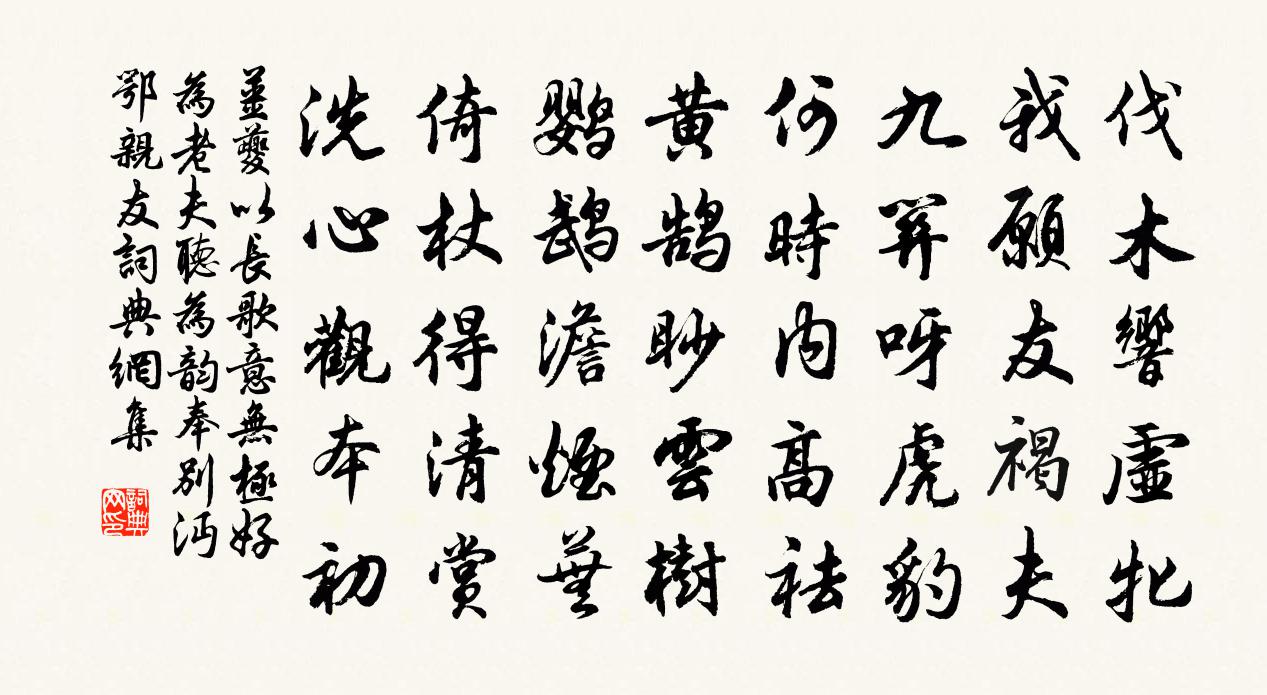 伐木響虛牝
我願友褐夫
九關呀虎豹
何時内高祛
黄鵠眇雲樹
鸚鵡澹煙蕪
倚杖得清賞
洗心觀本初
薑夔以長歌意無極好
為老夫聽為韵奉別沔
鄂親友詞典網集
詞典网印